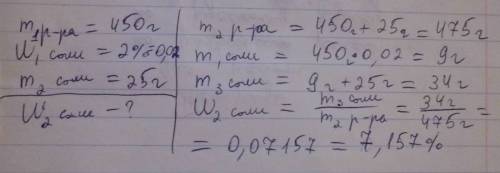 m₁ р-ра = 450г
W₁ соли = 2% = 0,02
m₂ соли = 25г
W₂ соли - ?
m₂ р-ра = 450г + 25г = 475г
m₁ соли = 450г · 0,02 = 9г
m₃ соли = 9г + 25г = 34г
W₂ соли = m₃ соли / m₂ р-ра = 34г / 475г =
= 0,07157 = 7,157%